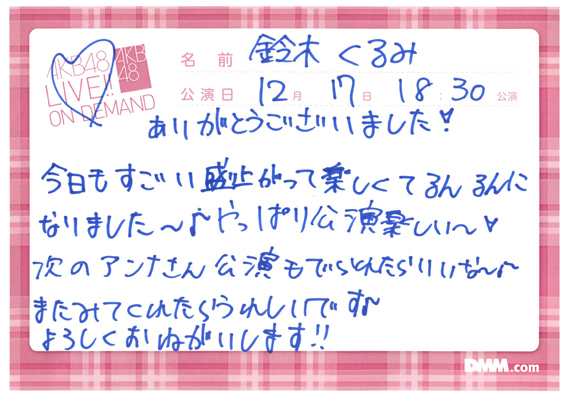 AKB48
LIVE!!
ON DEMAND
AKB
48
名前 鈴木くるみ
公演日 12月17日 18:30公演
ありがとうございました！
今日もすごい盛上がって楽しくてるんるんに
なりました～♪やっぱり公演楽しい～♥
次のアンナさん公演もでられたらいいな～♪
またみてくれたらうれしいです♪
よろしくおねがいします!!
DMM.com